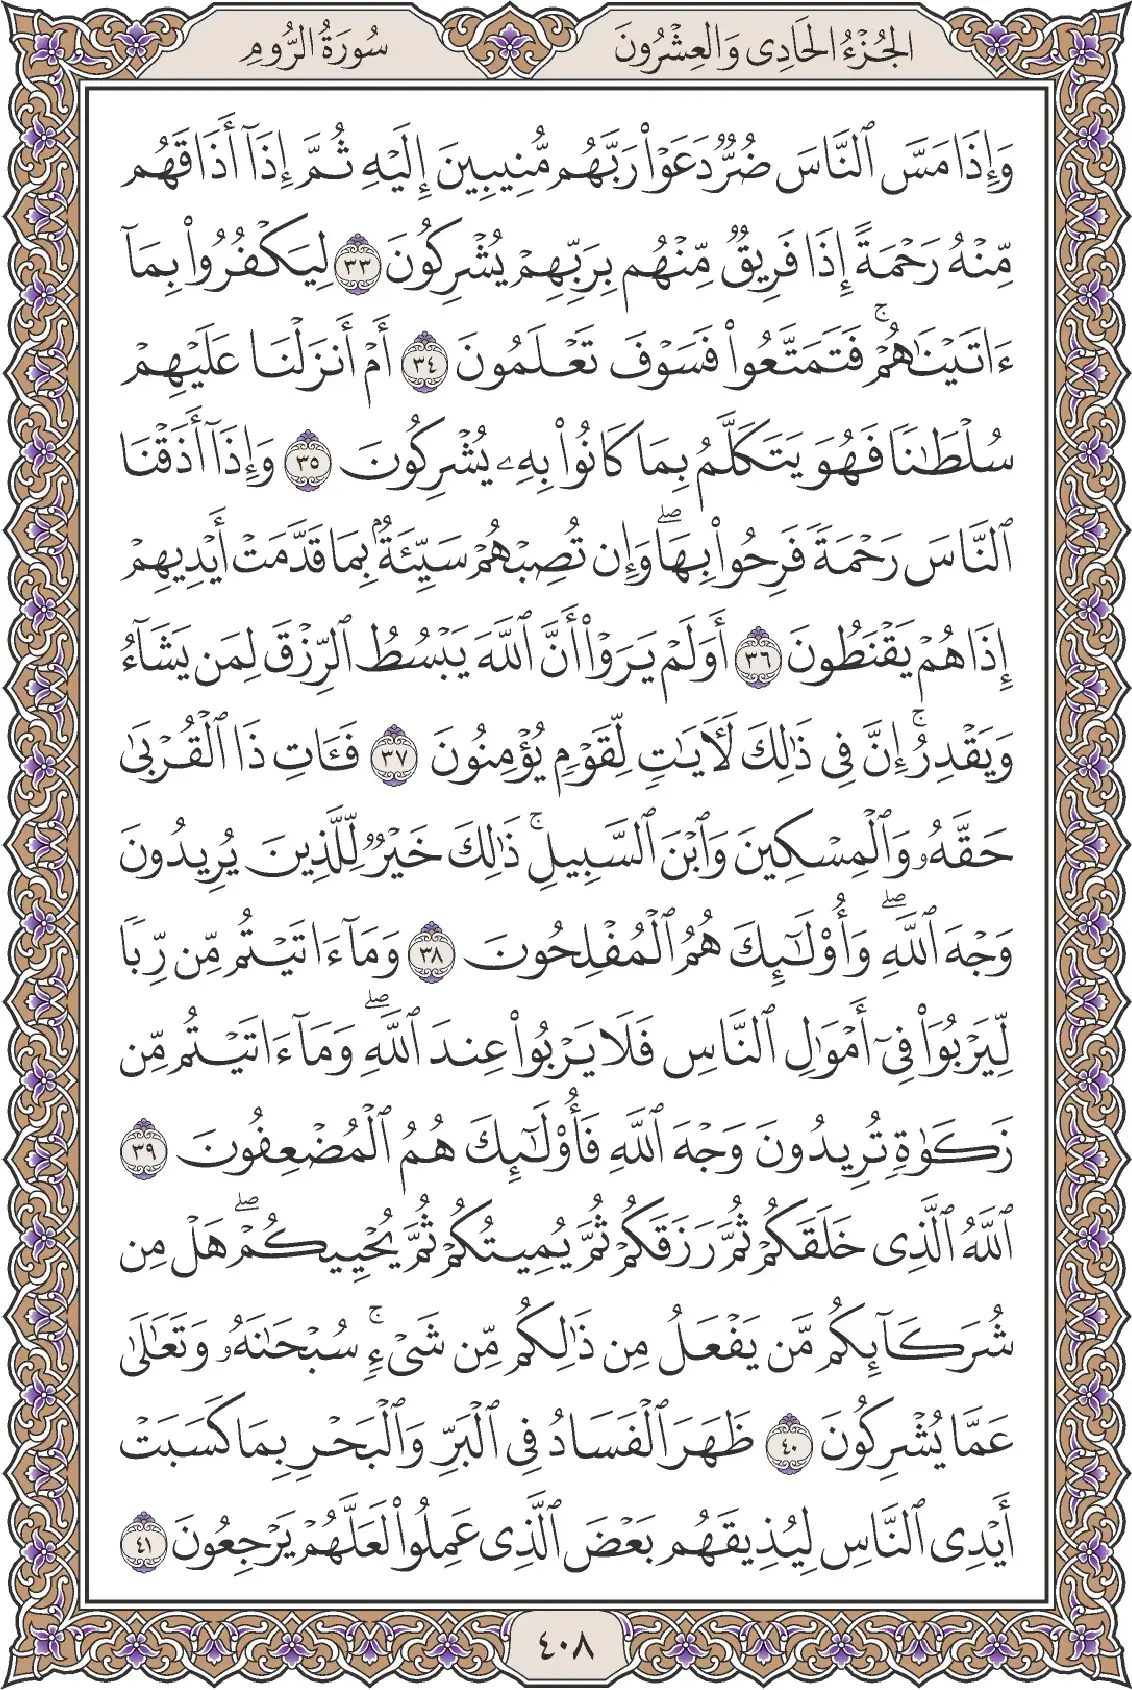 الجُزْءُ الحَادِي وَالعِشْرُونَ
سُورَةُ الرُّومِ
وَإِذَا مَسَّ ٱلنَّاسَ ضُرٌّ دَعَوْا۟ رَبَّهُم مُّنِيبِينَ إِلَيْهِ ثُمَّ إِذَآ أَذَاقَهُم
مِّنْهُ رَحْمَةً إِذَا فَرِيقٌ مِّنْهُم بِرَبِّهِمْ يُشْرِكُونَ ٣٣ لِيَكْفُرُوا۟ بِمَآ
ءَاتَيْنَـٰهُمْ ۚ فَتَمَتَّعُوا۟ فَسَوْفَ تَعْلَمُونَ ٣٤ أَمْ أَنزَلْنَا عَلَيْهِمْ
سُلْطَـٰنًا فَهُوَ يَتَكَلَّمُ بِمَا كَانُوا۟ بِهِۦ يُشْرِكُونَ ٣٥ وَإِذَآ أَذَقْنَا
ٱلنَّاسَ رَحْمَةً فَرِحُوا۟ بِهَا ۖ وَإِن تُصِبْهُمْ سَيِّئَةٌۢ بِمَا قَدَّمَتْ أَيْدِيهِمْ
إِذَا هُمْ يَقْنَطُونَ ٣٦ أَوَلَمْ يَرَوْا۟ أَنَّ ٱللَّهَ يَبْسُطُ ٱلرِّزْقَ لِمَن يَشَآءُ
وَيَقْدِرُ ۚ إِنَّ فِى ذَٰلِكَ لَـَٔايَـٰتٍ لِّقَوْمٍ يُؤْمِنُونَ ٣٧ فَـَٔاتِ ذَا ٱلْقُرْبَىٰ
حَقَّهُۥ وَٱلْمِسْكِينَ وَٱبْنَ ٱلسَّبِيلِ ۚ ذَٰلِكَ خَيْرٌ لِّلَّذِينَ يُرِيدُونَ
وَجْهَ ٱللَّهِ ۖ وَأُو۟لَـٰٓئِكَ هُمُ ٱلْمُفْلِحُونَ ٣٨ وَمَآ ءَاتَيْتُم مِّن رِّبًا
لِّيَرْبُوَا۟ فِىٓ أَمْوَٰلِ ٱلنَّاسِ فَلَا يَرْبُوا۟ عِندَ ٱللَّهِ ۖ وَمَآ ءَاتَيْتُم مِّن
زَكَوٰةٍ تُرِيدُونَ وَجْهَ ٱللَّهِ فَأُو۟لَـٰٓئِكَ هُمُ ٱلْمُضْعِفُونَ ٣٩
ٱللَّهُ ٱلَّذِى خَلَقَكُمْ ثُمَّ رَزَقَكُمْ ثُمَّ يُمِيتُكُمْ ثُمَّ يُحْيِيكُمْ ۖ هَلْ مِن
شُرَكَآئِكُم مَّن يَفْعَلُ مِن ذَٰلِكُم مِّن شَىْءٍ ۚ سُبْحَـٰنَهُۥ وَتَعَـٰلَىٰ
عَمَّا يُشْرِكُونَ ٤٠ ظَهَرَ ٱلْفَسَادُ فِى ٱلْبَرِّ وَٱلْبَحْرِ بِمَا كَسَبَتْ
أَيْدِى ٱلنَّاسِ لِيُذِيقَهُم بَعْضَ ٱلَّذِى عَمِلُوا۟ لَعَلَّهُمْ يَرْجِعُونَ ٤١
٤٠٨